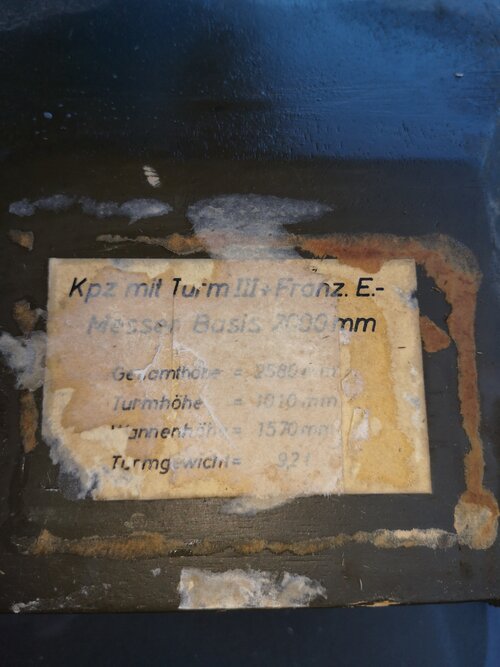 Kpz mit Turm III + Franz. E.-
Messer Basis 2000 mm
Gesamthöhe = 2580 mm
Turmhöhe = 1010 mm
Wannenhöhe = 1570 mm
Turmgewicht = 9,2 t